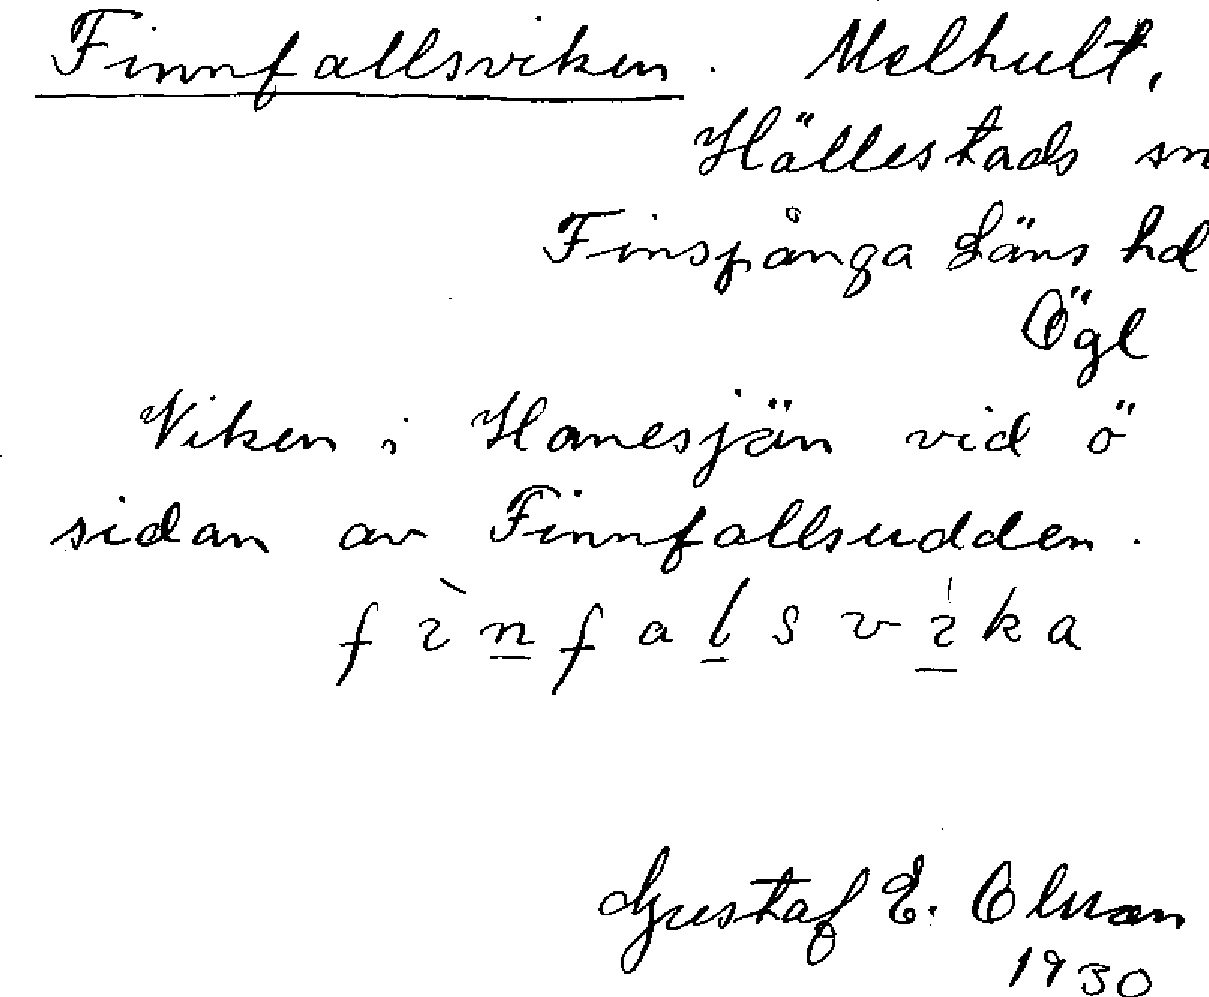 Finnfallsviken. Melhult,
Hällestads sn
Finspånga Läns hd
Ögl
Viken i Hanesjän vid ö
sidan av Finnfallsudden.
fìnfalsvika
Gustaf E. Olman
1930